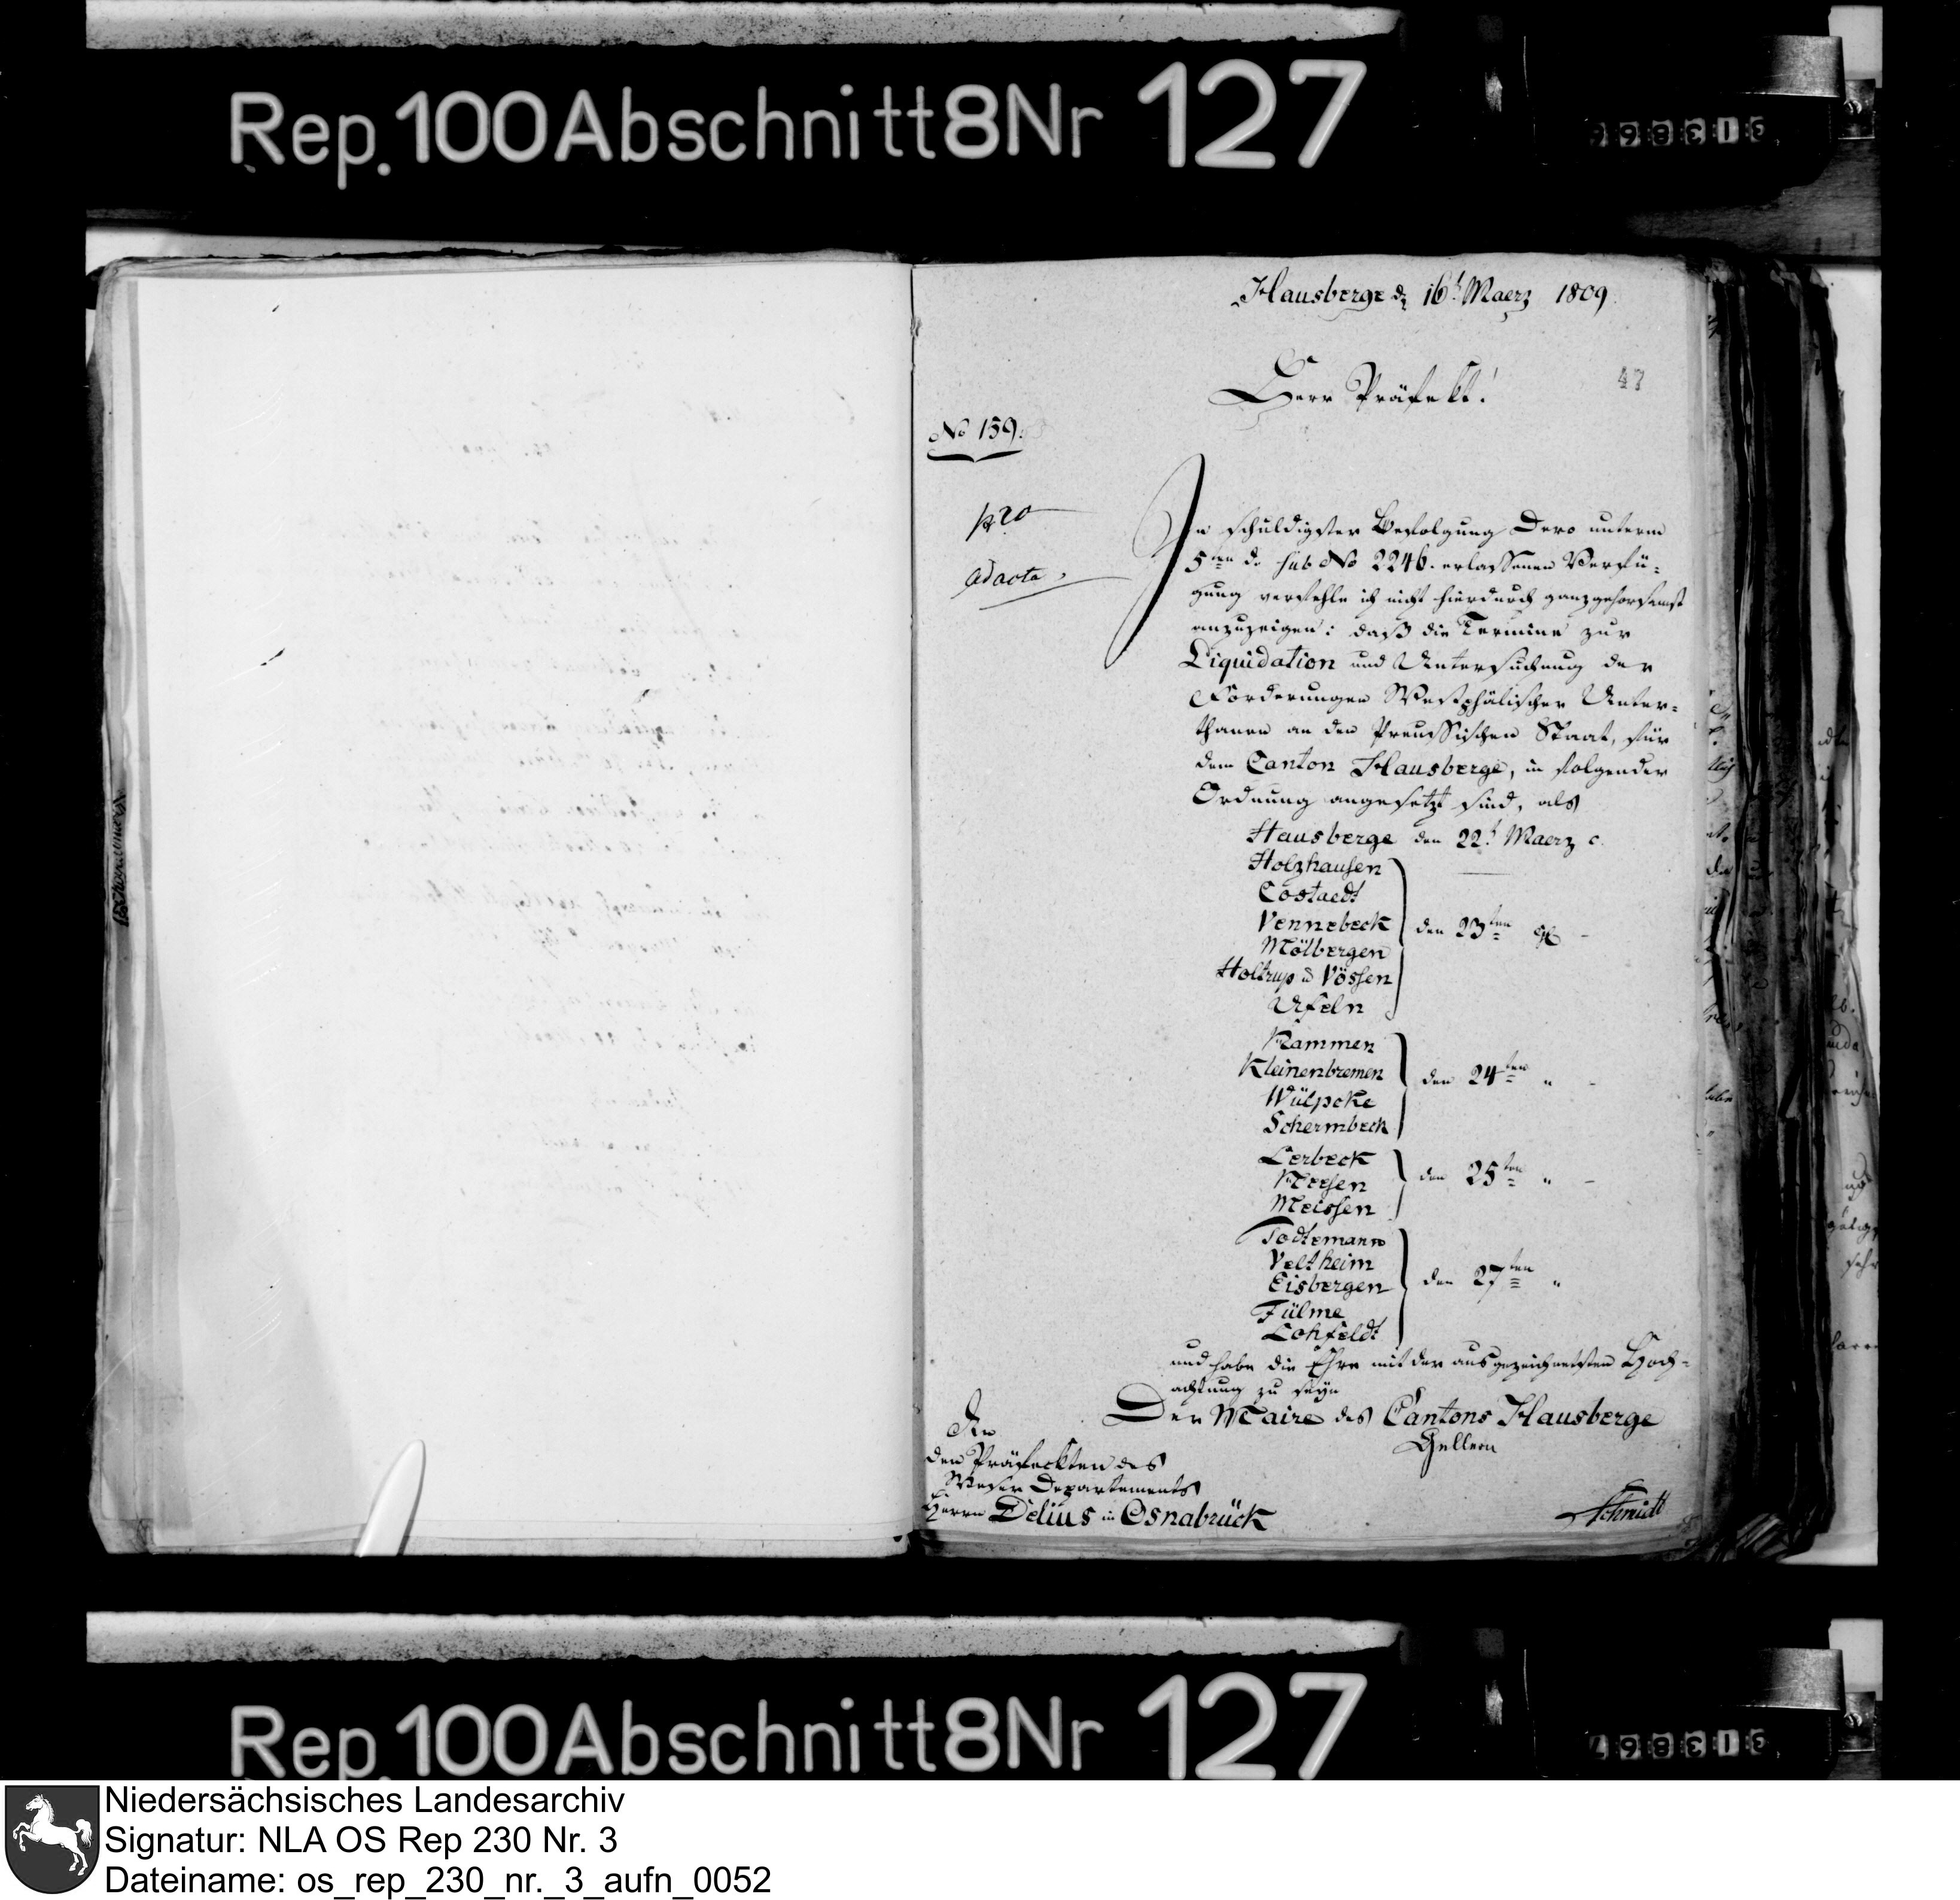 Rep.100Abschnitt8Nr 127
Hausberge d. 16t Maerz 1809
47
Herr Präfekt!
No 159.
ad acta
In schuldigster Befolgung Dero unterm
5ten d. sub No 2246. erlassenen Verfü-
gung verfehle ich nicht hierdurch ganz gehorsamst
anzuzeigen: daß die Termine zur
Liquidation und Untersuchung der
Forderungen Westphälischer Unter-
thanen an den Preussischen Staat, für
dem Canton Hausberge, in folgender
Ordnung angesetzt sind, als
Hausberge den 22t Maerz c.
Holzhausen
Costaedt
Vennebeck den 23ten
Mölbergen
Holtrup u Vössen
Ufeln
Nammen
Kleinenbremen den 24ten "
Wülpcke
Schermbeck
Lerbeck
Neesen den 25ten "
Meissen
Todtemann
Veltheim
Eisbergen den 27ten "
Fülme
Lohfeldt
und habe die Ehre mit der ausgezeichnetsten Hoch-
achtung zu seyn
Der Maire des Cantons Hausberge
An
den Präfeckten des
Weser Departements
Herrn Delius in Osnabrück
Schmidt
Rep.100Abschnitt8Nr 127
Niedersächsisches Landesarchiv
Signatur: NLA OS Rep 230 Nr. 3
Dateiname: os_rep_230_nr._3_aufn_0052